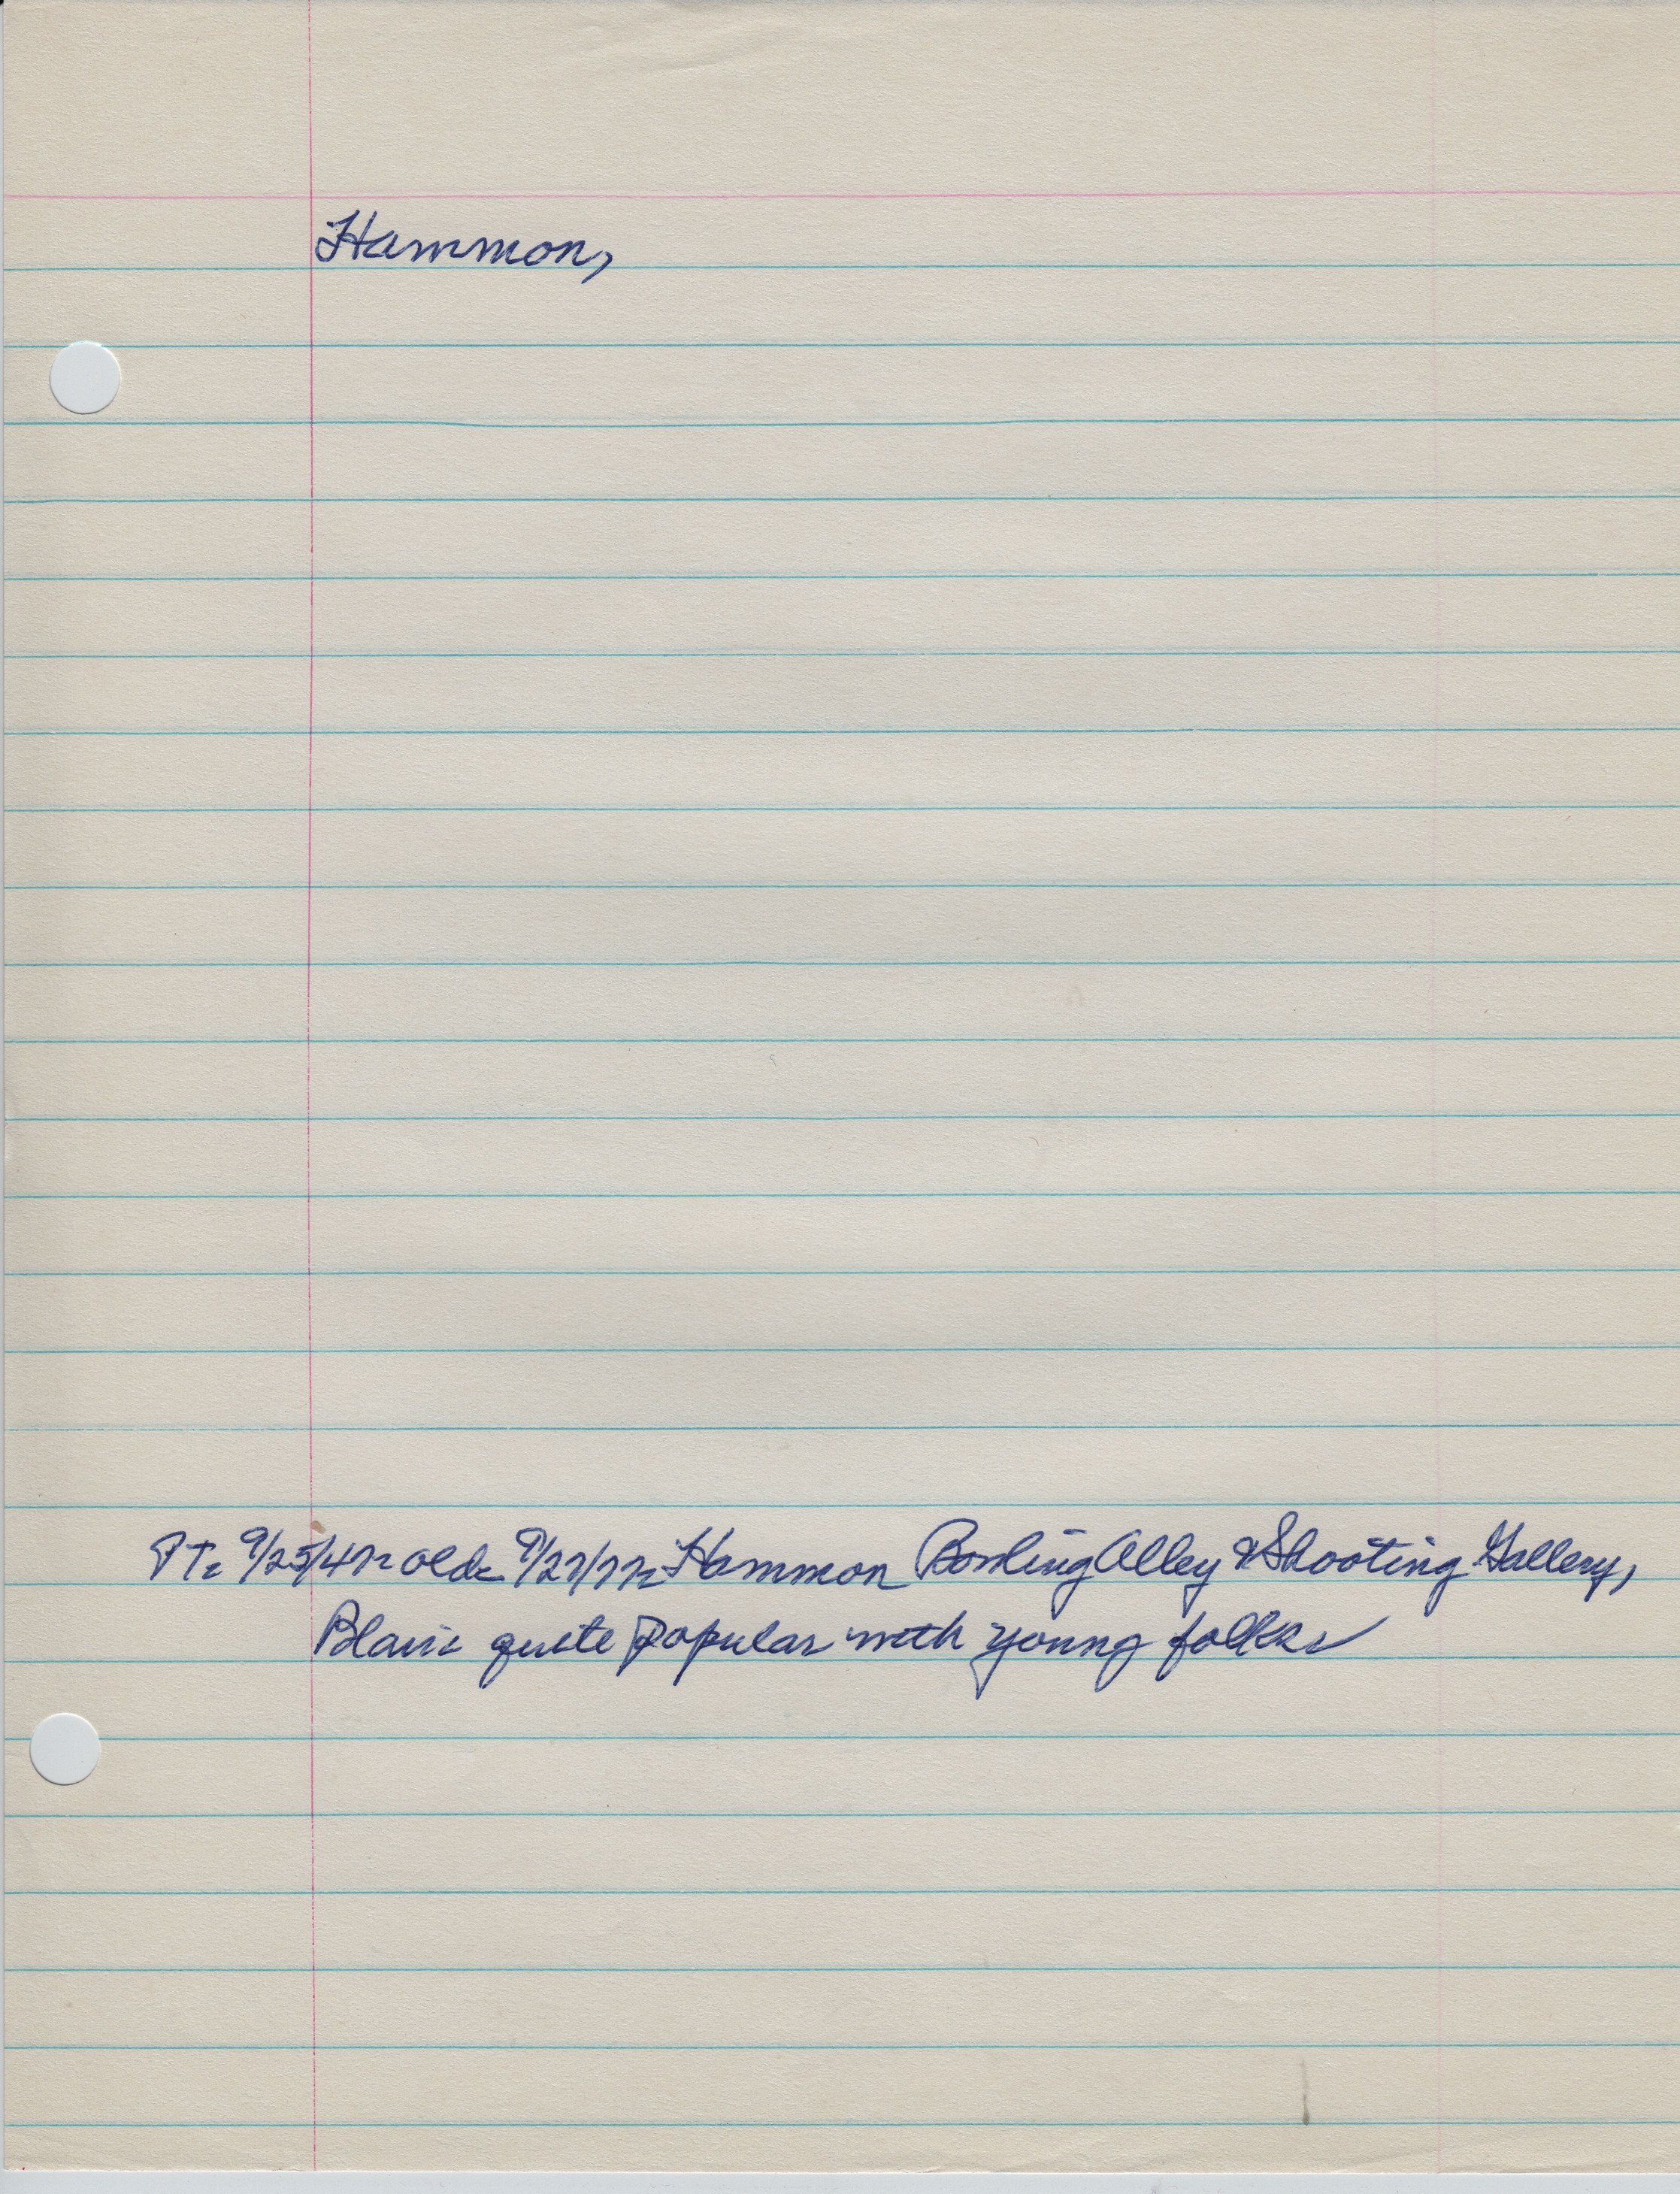 Hammon,
PT: 9/25/47: olde 9/27/77: Hammon Bowling Alley & Shooting Gallery,
Blair: quite popular with young folks